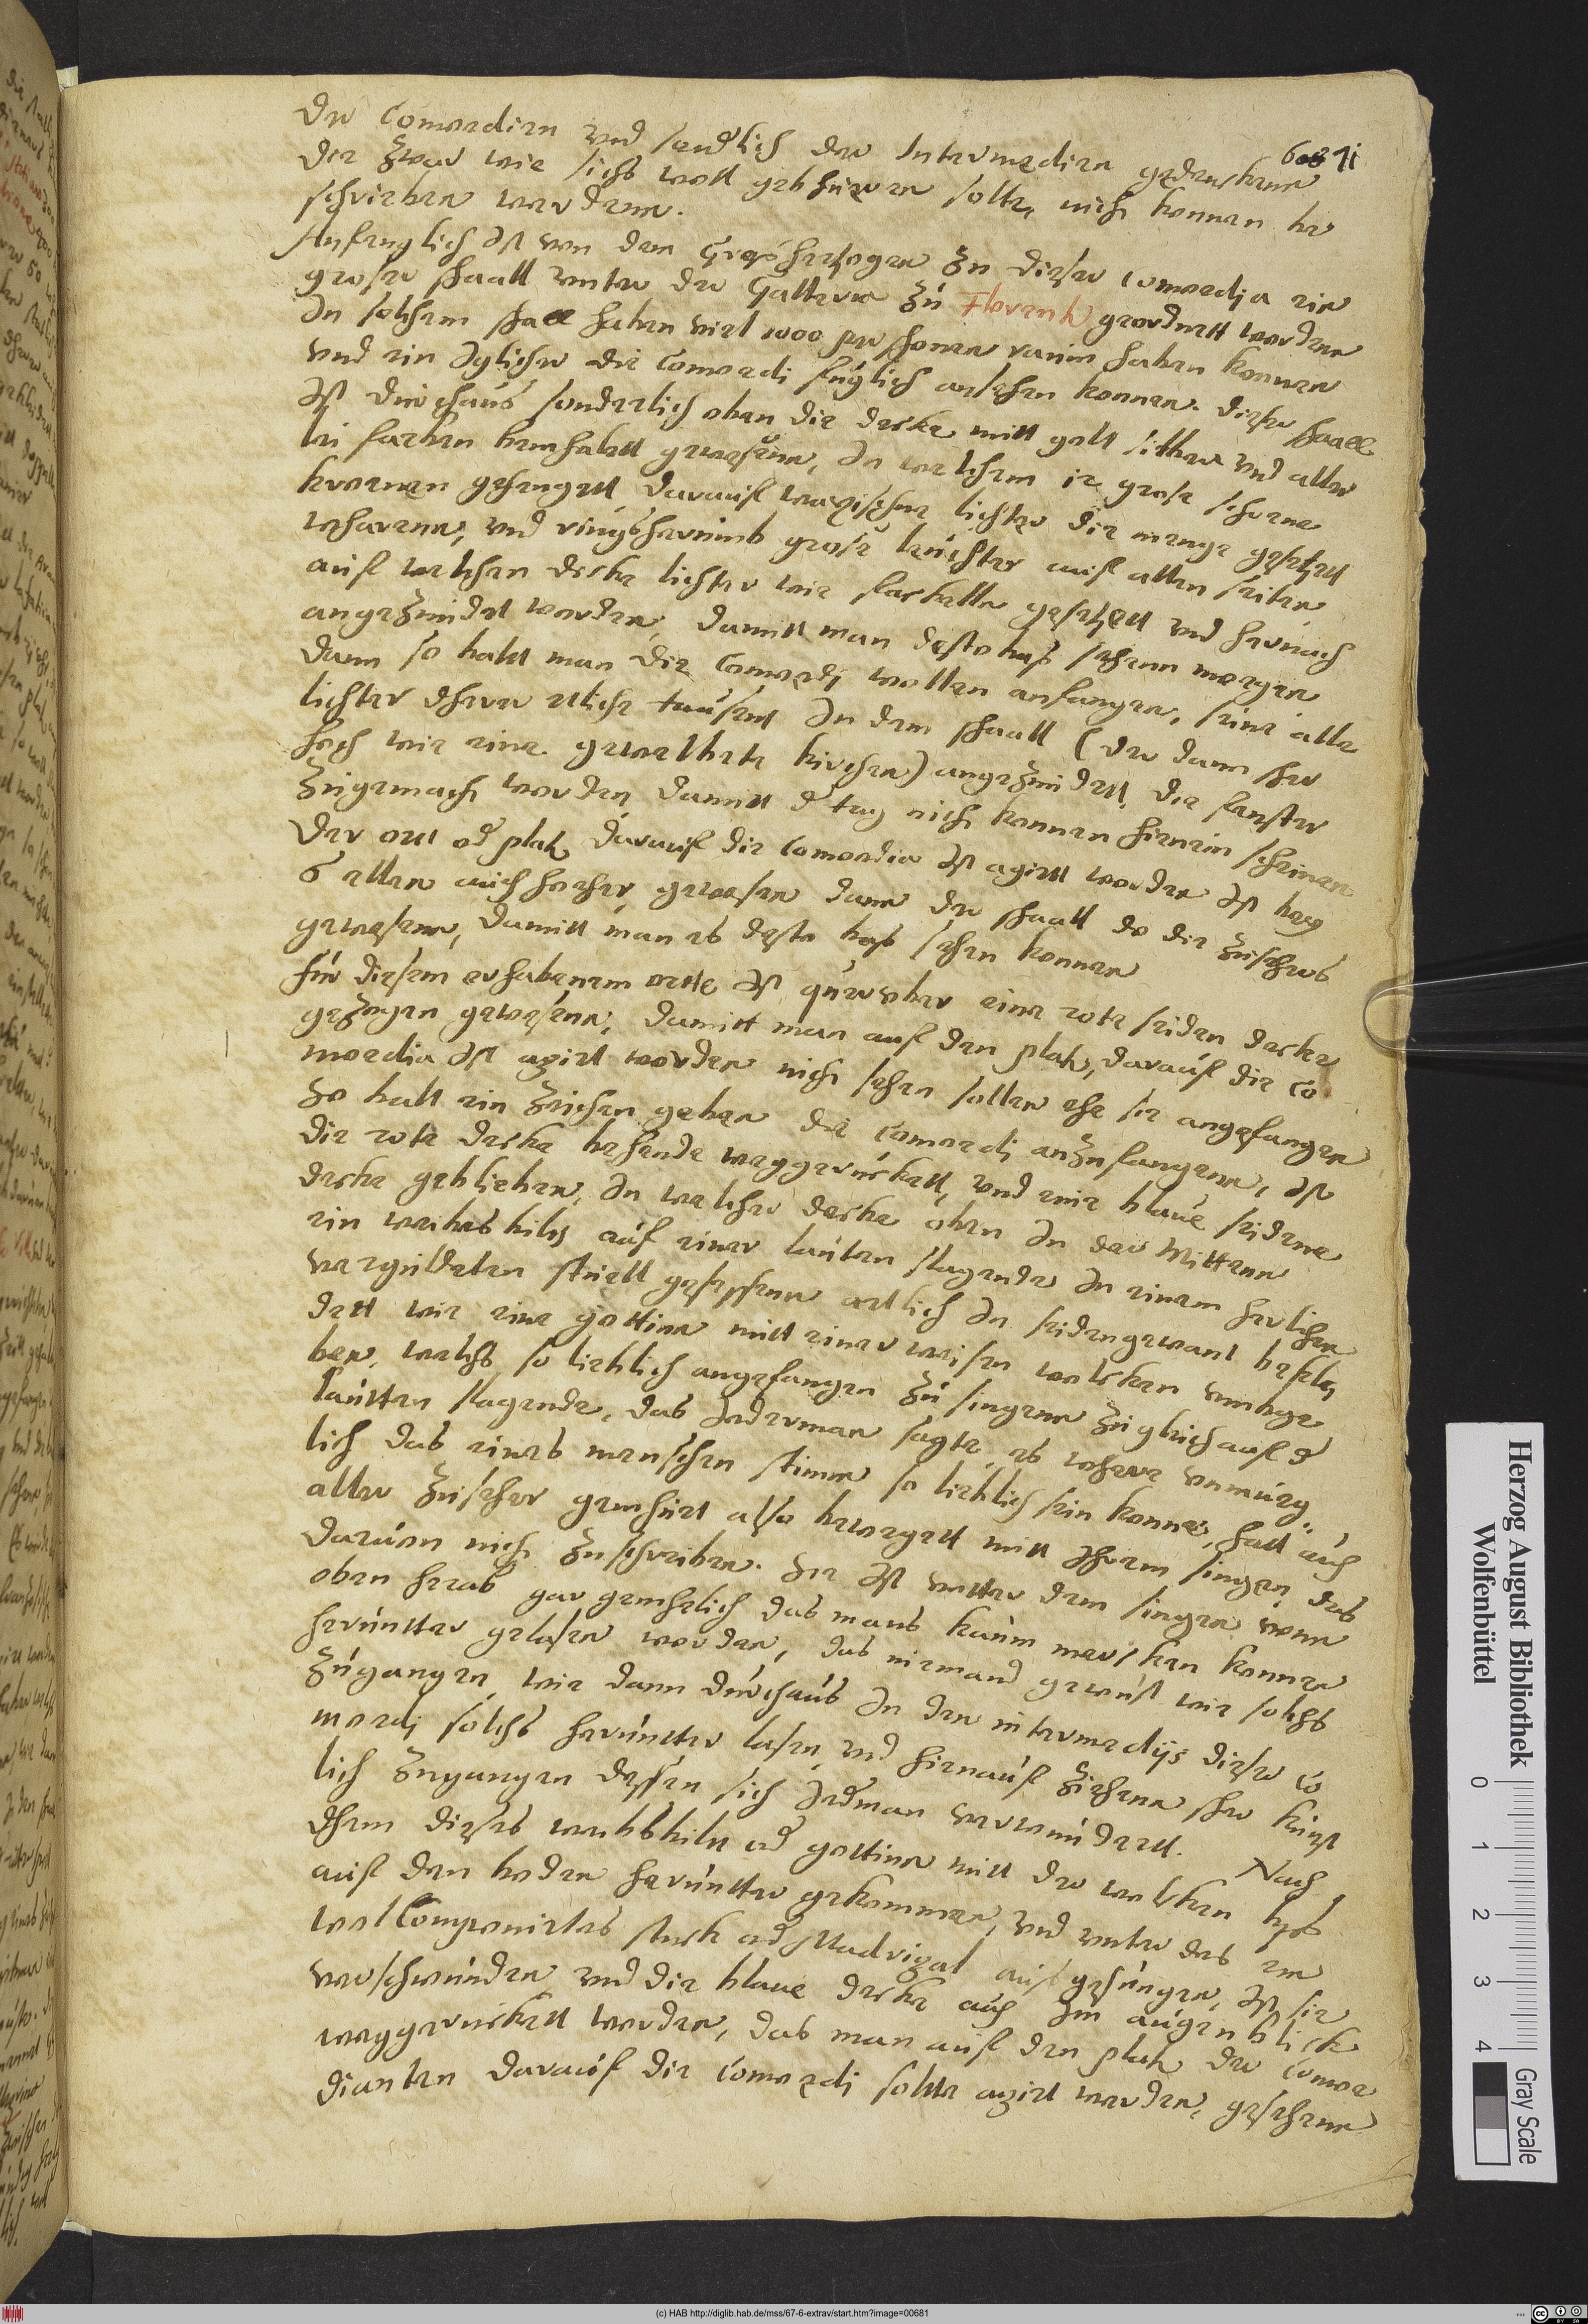 der Comoedien vnd sendtlich der Intermedien gedenckenn
der zwar wie sichs woll gebhüeren solte, nich konnen be
schrieben werdenn.
Anfenglich ist von dem Groshertzogen zu dieser comoedia ein
groser shaall vnter der Gallerie zu Florentz geordnett worden
In solchem shaall haben viel 1000 pershonen raum haben konnen
vnd ein Iglicher die Comoedi füglich ansehen konnen. dieser shaall
Ist durchaus sonderlich oben die decke mitt golt silber vnd aller
lei farben bemhalett gewesenn, In welchem 12 grose schone
kroenen gehengett darauff wexischne lichter die menge gesetzett
wharenn, vnd ringsherumb grose leuchter auf allen seiten
auff welchen dicke lichter wie fackelln gesetzett vnd hernach
angezundet worden, damitt man destobas sehenn moegen
dann so baltt man die Comoedj wollen anfangen, seint alle
lichter deren etliche tausent In dem shaall (der dann sher
hoch wie eine gewelbete kirchen) angezundett, die fenster
zugemach worden damitt d tag nich konnen hienein scheinen
Der ortt od platz darauff die comoedia ist agirtt worden ist
allen auch hoeher gewesen dann der shaall do die zusehers
gewesenn, damitt man es deste bas sehen konnen
Für diesem erhabenem ortte ist quer vber eine rote seiden decke
gezogen gewesenn, damitt man auf den platz, darauff die Co
moedia ist agirt worden nich sehen sollen ehe sie angefangen
So baltt ein zeichen geben die Comoedj anzufangenn, ist
die rote decke behende weggerückett, vnd eine blaue seidene
decke geblieben, In welcher decke oben In der Mittenn
ein weibesbildt auf einer lauten slagende In einem herlichen
verguldeten stuell gesessenn ertlich In seidengewant bekle
dett wie eine gottinn mitt einer weisen wolcken vmbge
ben, welchs so lieblich angefangen zu singenn zugleich auf d
lautten slagende, das Iederman sagte, es where vnmüeg
lich das eines menschen stimme so lieblich sein konne, hatt auch
aller zuseher gemhüet also bewegett mitt ihrem singen, das
daruon nich zuschreiben. Sie ist vntter dem singen vonn
oben herab gar gemhelich das mans kaum mercken konnen
heruntter gelasen worden, das niemand gewust wie solchs
zugangen, wie dann durchaus In den intermedijs dieser Co
moedj solchs heruntter lasen, vnd hienauff ziehenn sher künst
lich zugangen dessen sich Iedman verwundertt. Nach
dhem dieses weibsbildt od gottinn mitt der wolcken bys
auff den boden heruntter gekommen, vnd vnter des ein
wolComponiertes stuck od Madrigal aufgesungen, ist sie
verschwunden vnd die blaue decke auch Im augenblick
weggeruckett worden, das man auff den platz der Comoe
dianten darauff die Comoedi soltte agirt werden, gesehenn
Herzog August Bibliothek
Wolfenbüttel
0 1 2 3 4
Gray Scale
(c) HAB http://diglib.hab.de/mss/67-6-extrav/start.htm?image=00681